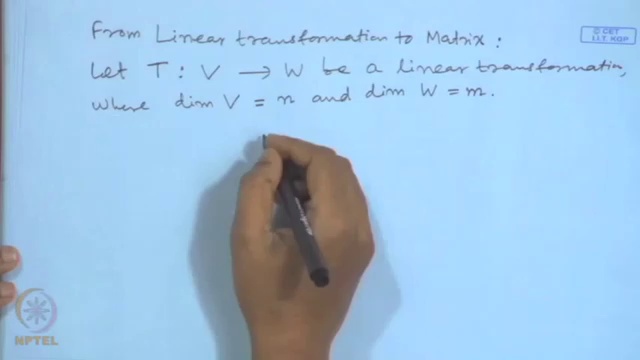 © CET
I.I.T. KGP
From Linear transformation to Matrix :
Let T : V → W be a linear transformation,
where dim V = n and dim W = m.
NPTEL